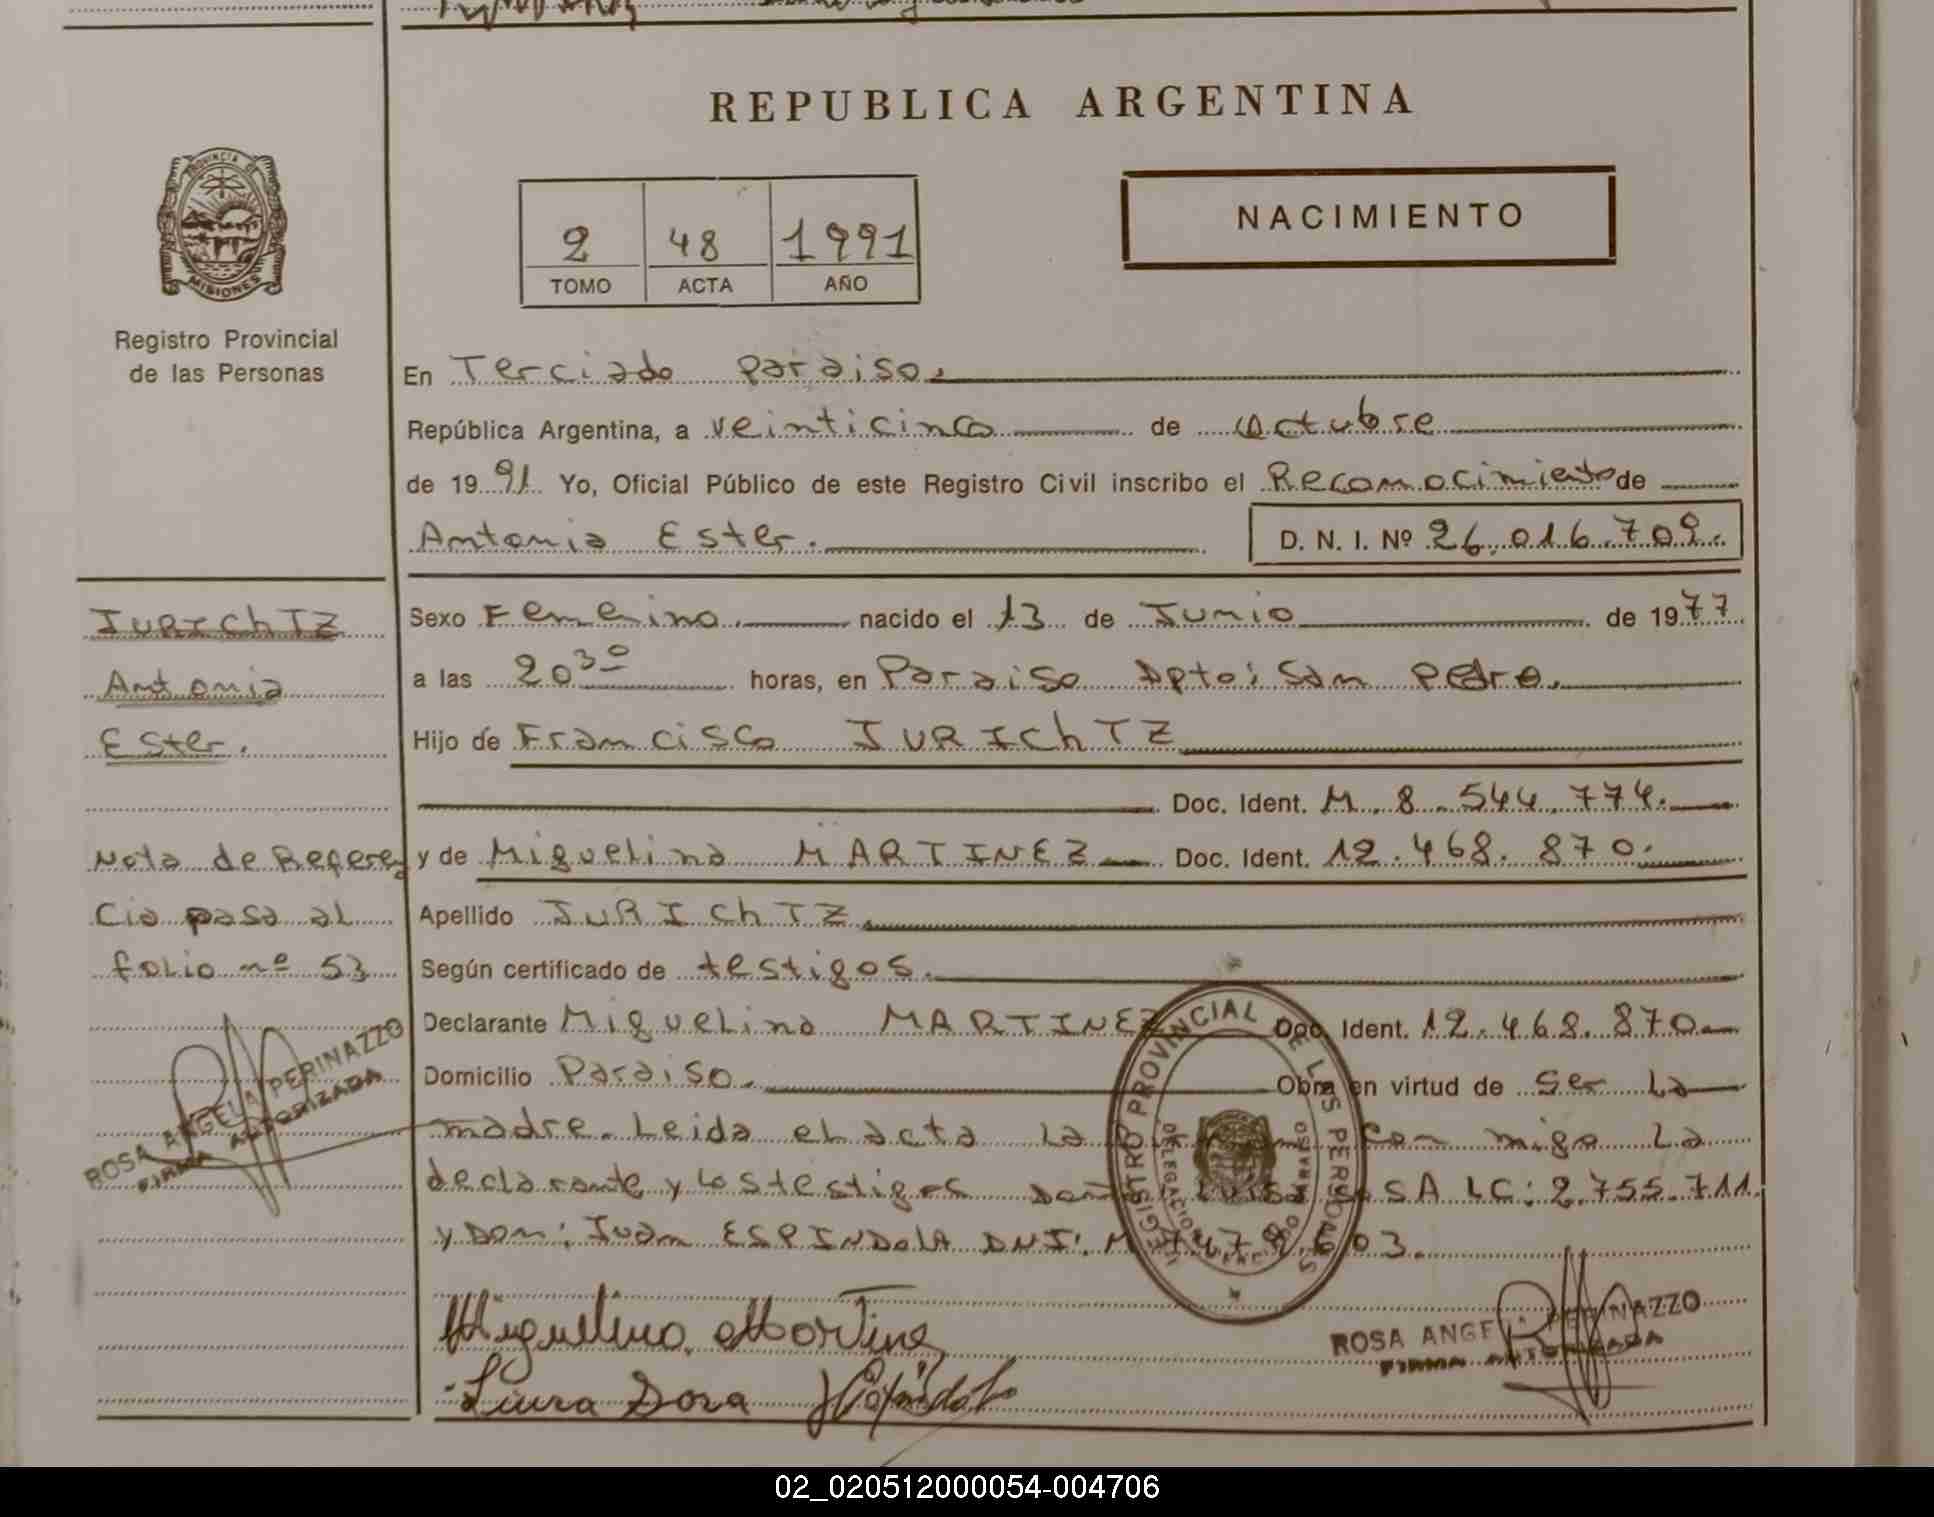 REPUBLICA ARGENTINA
PROVINCIA DE MISIONES
Registro Provincial
de las Personas
2 48 1991
TOMO ACTA AÑO
NACIMIENTO
En Terciado Paraiso.
República Argentina, a veinticinco de octubre
de 1991 Yo, Oficial Público de este Registro Civil inscribo el Reconocimiento de
Antonia Ester. D. N. I. Nº 26.016.709.
Sexo Femenino. nacido el 13 de Junio de 1977
a las 20 30 horas, en Paraiso Dpto: San Pedro.
Hijo de Francisco IURIChTZ
Doc. Ident. M. 8.544.774.
y de Miguelina MARTINEZ Doc. Ident. 12.468.870.
Apellido IURIChTZ
Según certificado de testigos.
Declarante Miguelina MARTINEZ Doc. Ident. 12.468.870
Domicilio Paraiso. Obra en virtud de Ser La
madre. Leida el acta La con migo La
declarante y los testigos SOSA LC: 2.755.711
y Don: Juan ESPINDOLA DNI: M
IURIChTZ
Antonia
Ester.
Nota de Referen
cia pasa al
folio nº 53
ROSA ANGELA PERINAZZO
FIRMA AUTORIZADA
REGISTRO PROVINCIAL DE LAS PERSONAS
Miguelina Martinez
Luisa Sosa
ROSA ANGELA PERINAZZO
FIRMA AUTORIZADA
02_020512000054-004706